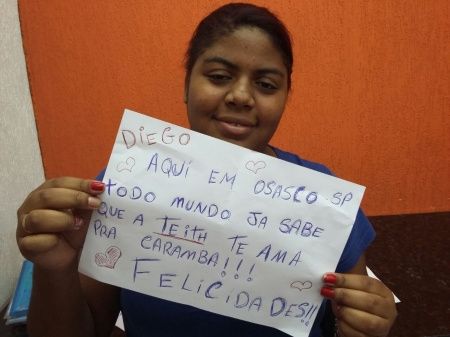 DIEGO
AQUÍ EM OSASCO SP
TODO MUNDO JA SABE
QUE A TEITH TE AMA
PRA CARAMBA!!!
FELICIDADES!!